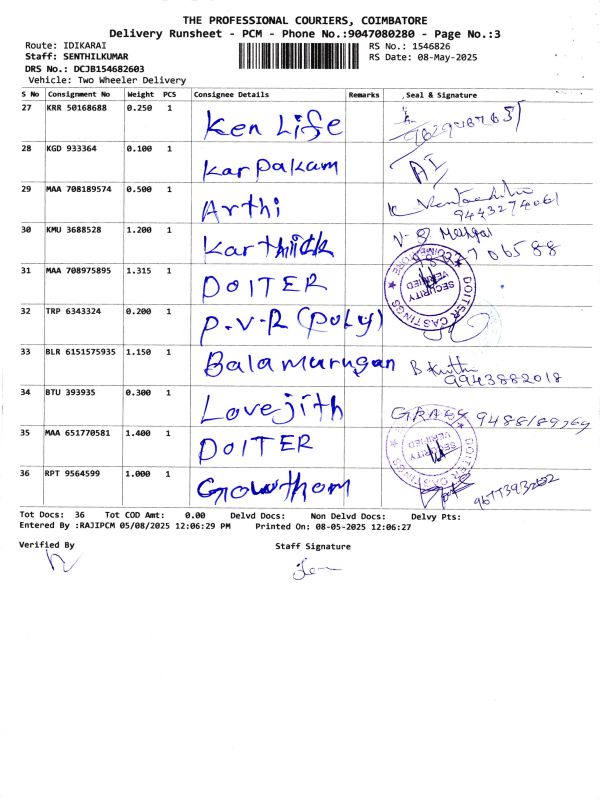 THE PROFESSIONAL COURIERS, COIMBATORE
Delivery Runsheet - PCM - Phone No.:9047080280 - Page No.:3
Route: IDIKARAI RS No.: 1546826
Staff: SENTHILKUMAR RS Date: 08-May-2025
DRS No.: DCJB154682603
Vehicle: Two Wheeler Delivery
S No Consignment No Weight PCS Consignee Details Remarks Seal & Signature
27 KRR 50168688 0.250 1 Ken Life
28 KGD 933364 0.100 1 Karpakam
29 MAA 708189574 0.500 1 Arthi
9443274061
30 KMU 3688528 1.200 1 Karthick
31 MAA 708975895 1.315 1 DOITER DOITER CASTINGS COIMBATORE SECURITY VERIFIED
32 TRP 6343324 0.200 1 P.V.R (Poly)
33 BLR 6151575935 1.150 1 Balamurugan
9943882018
34 BTU 393935 0.300 1 Lovejith
35 MAA 651770581 1.400 1 DOITER DOITER CASTINGS SECURITY VERIFIED
36 RPT 9564599 1.000 1 Gowthom
Tot Docs: 36 Tot COD Amt: 0.00 Delvd Docs: Non Delvd Docs: Delvy Pts:
Entered By :RAJIPCM 05/08/2025 12:06:29 PM Printed On: 08-05-2025 12:06:27
Verified By Staff Signature